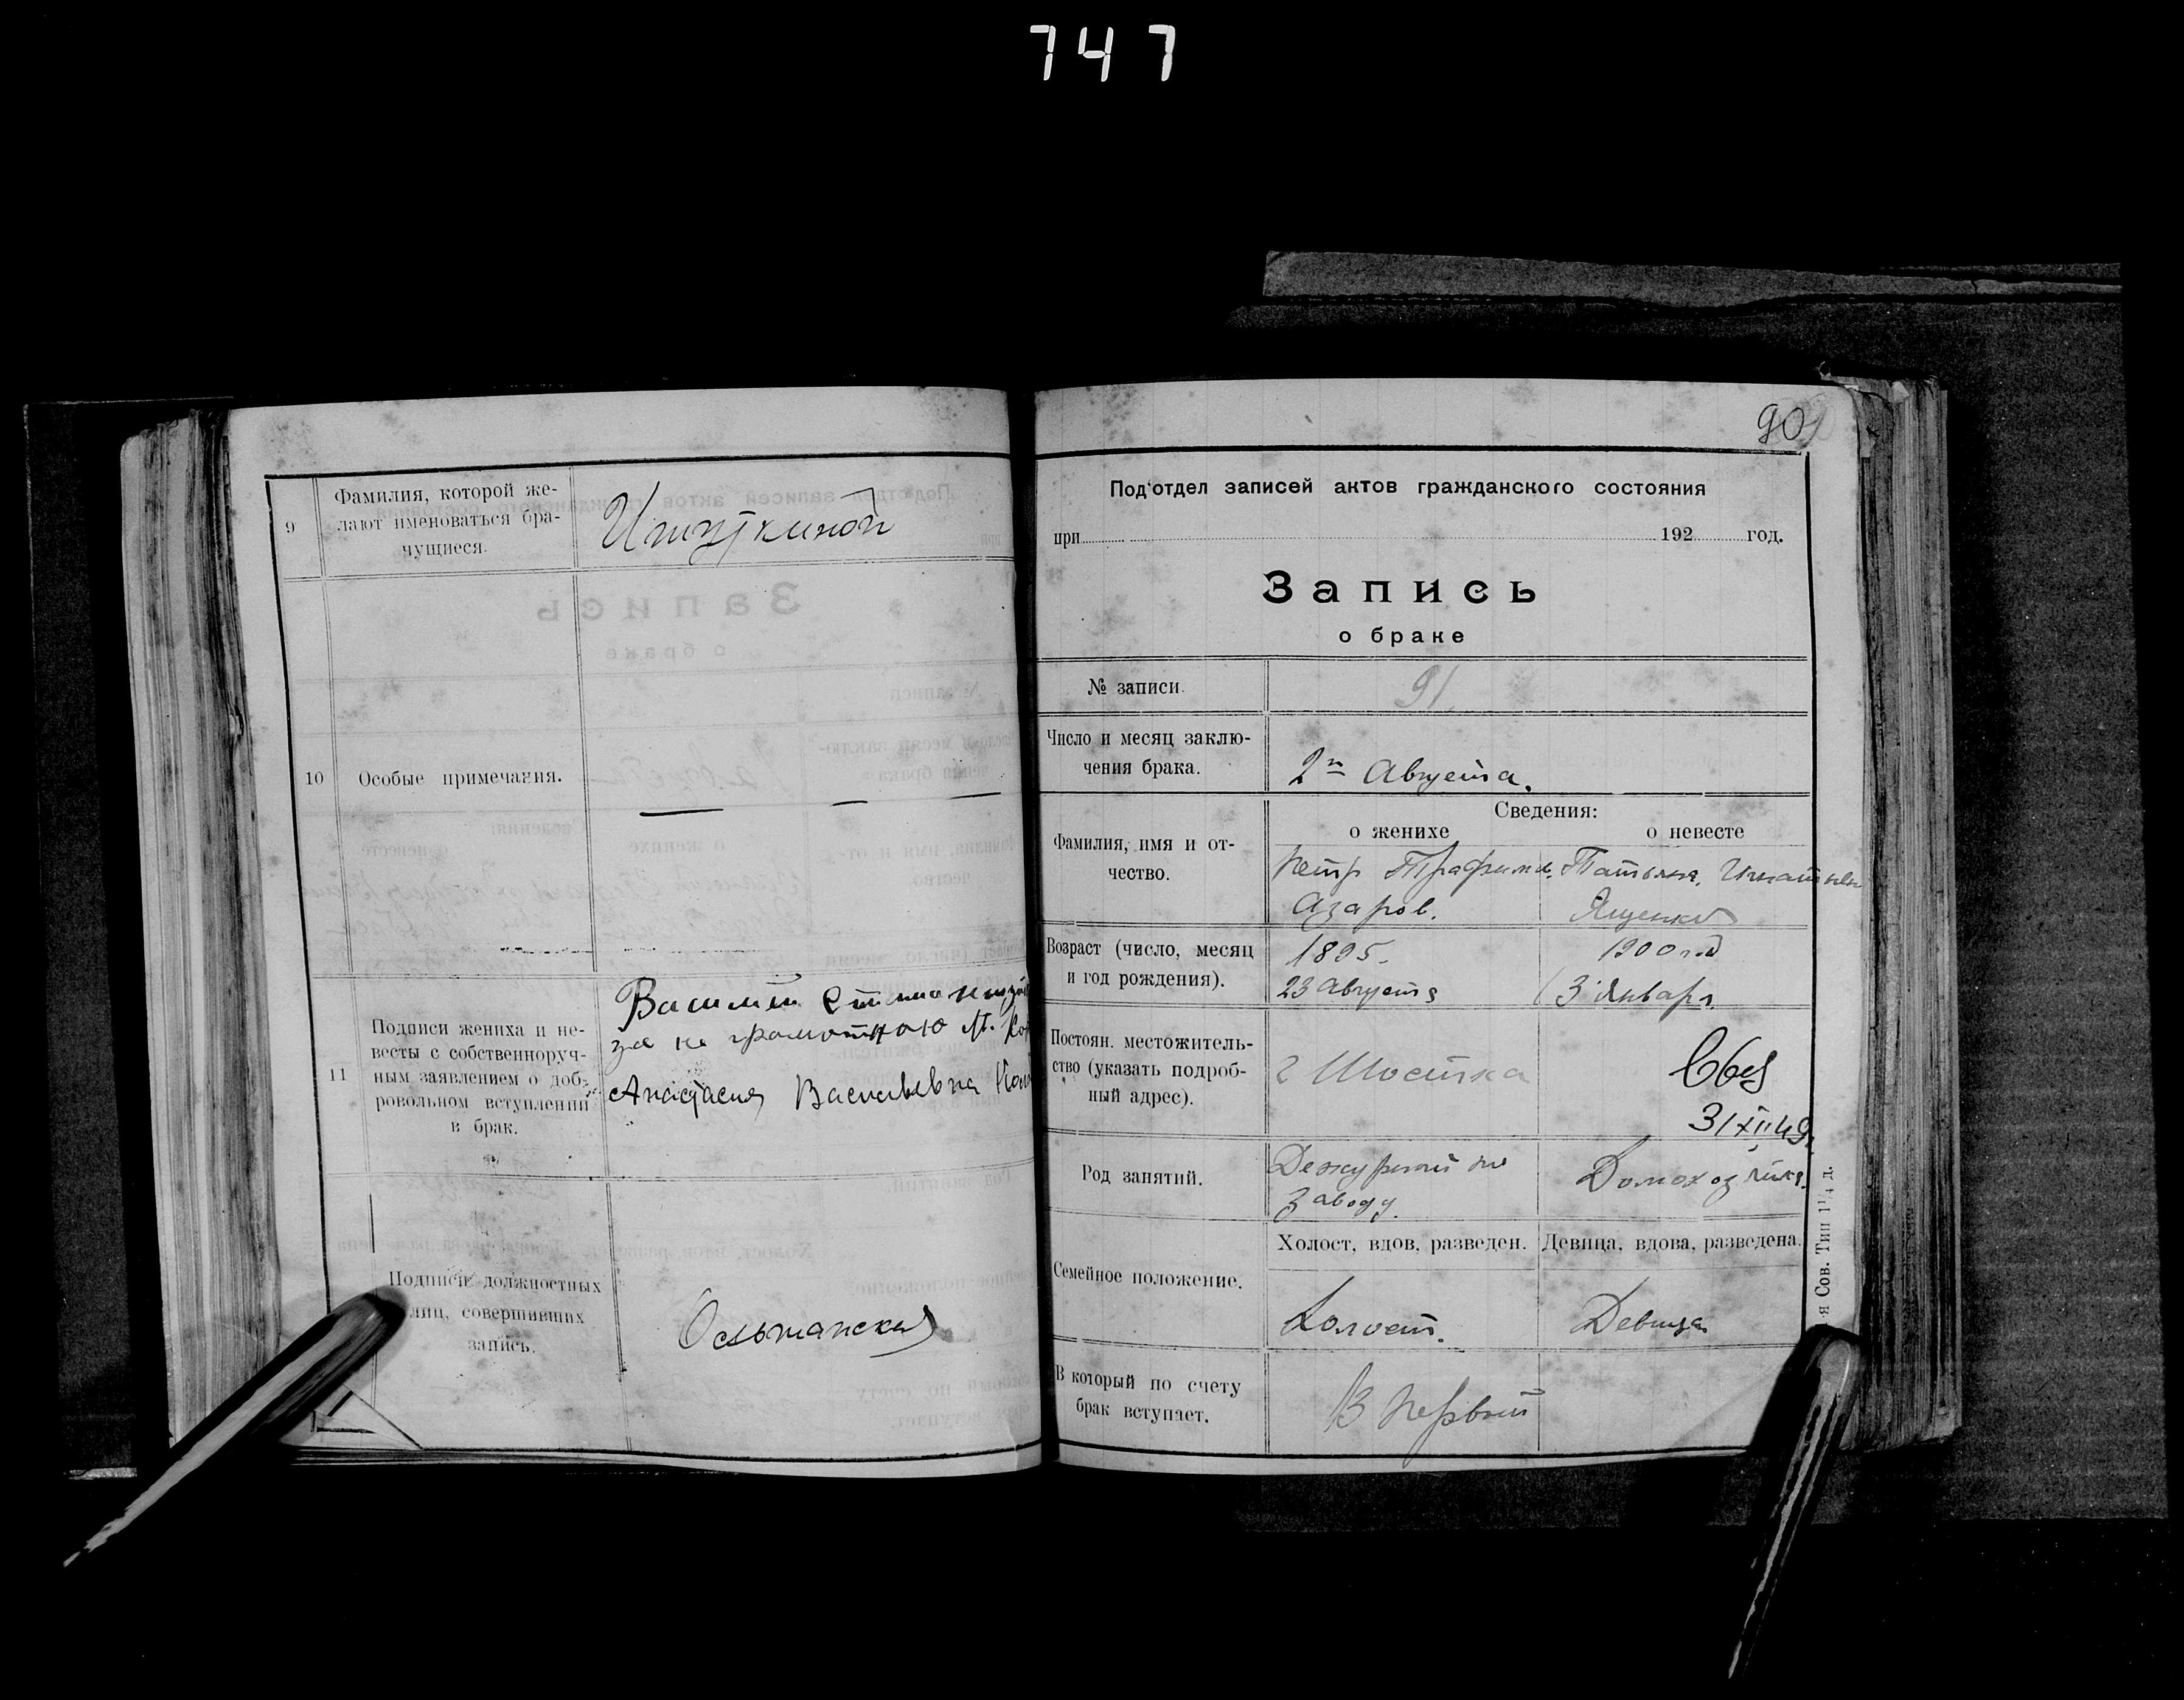 747
9
Фамилия, которой же-
лают именоваться бра-
чущиеся.
10
Особые примечания.
11
Подписи жениха и не-
весты с собственноруч-
ным заявлением о доб-
ровольном вступлении
в брак.
за не грамотною М.
Анастасия Васильевна
Подписи должностных
лиц, совершивших
запись.
90
Под'отдел записей актов гражданского состояния
при 192 год.
Запись
о браке
№ записи.
91
Число и месяц заклю-
чения брака.
2го Августа.
Сведения:
о женихе
о невесте
Фамилия, имя и от-
чество.
Петр Трафим.
Азаров.
Татьяна
Ященко
Возраст (число, месяц
и год рождения).
1895.
23 Августа
1900 год
3 Января
Постоян. местожитель-
ство (указать подроб-
ный адрес).
г Шостка
31/XII 49
Род занятий.
Дежурный по
заводу.
Домохозяйка.
Холост, вдов, разведен.
Девица, вдова, разведена.
Семейное положение.
Холост.
Девица
В который по счету
брак вступает.
В первый
-я Сов. Тип 1¼ д.